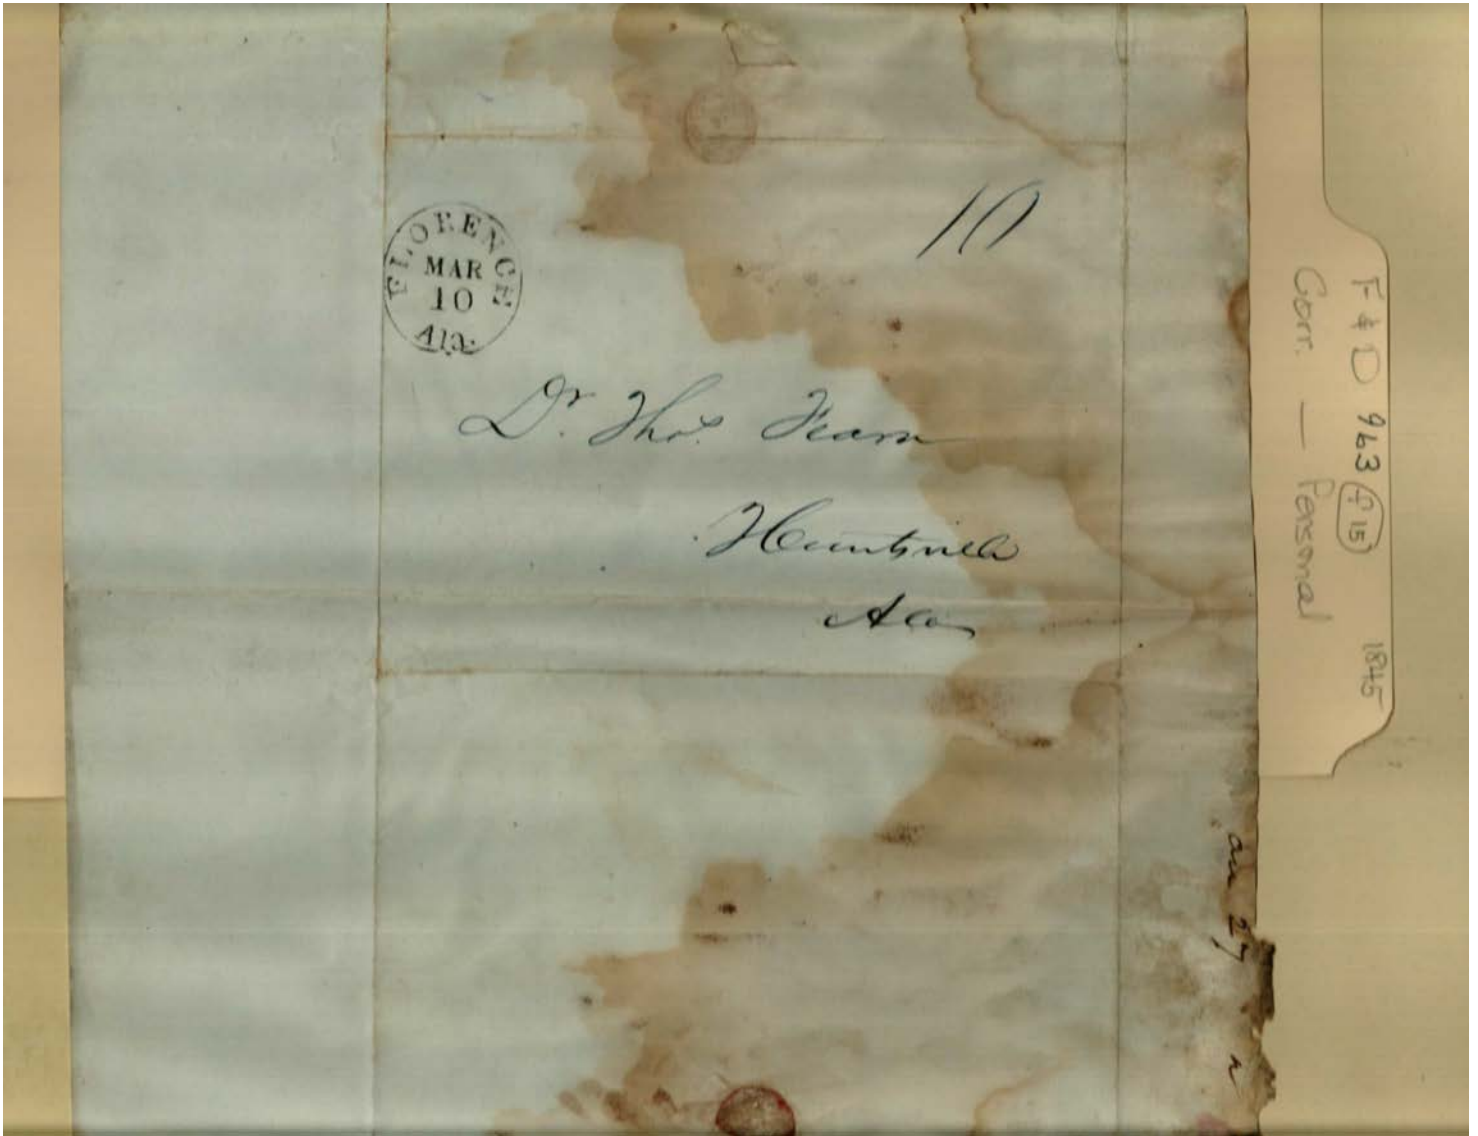 10
FLORENCE
MAR
10
Ala.
Dr. Thos. Fearn
Huntsville
Ala
F & D 963 F 15 1845
Corr. — Personal
27